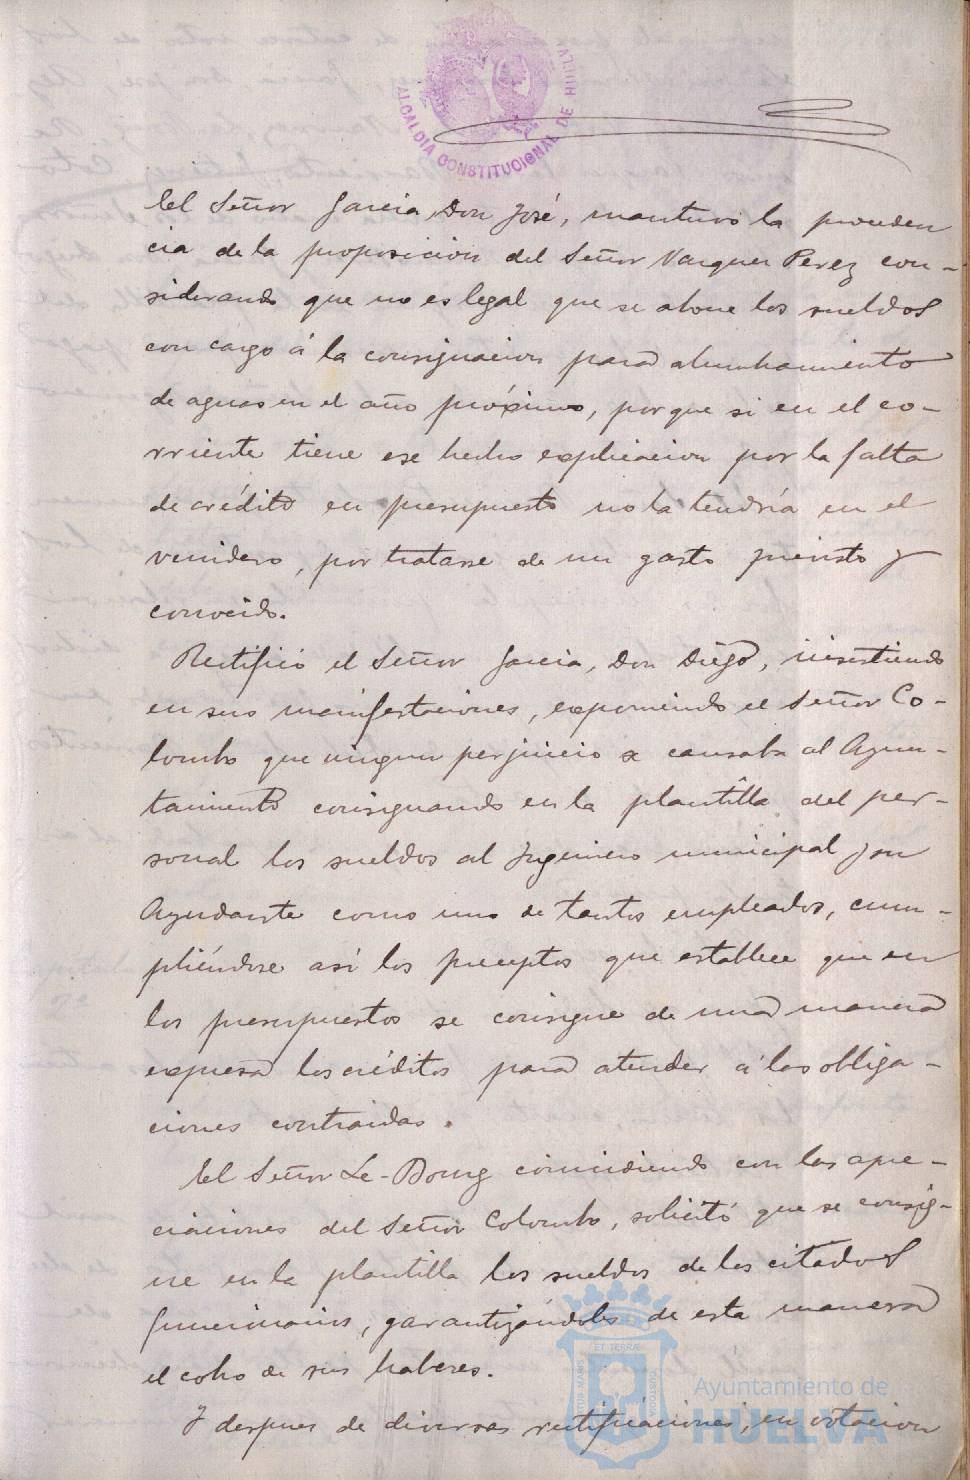 ALCALDIA CONSTITUCIONAL DE HUELVA
El Señor Garcia, Don José, mantuvo la proceden
cia de la proposicion del Señor Vazquez Perez con-
siderando que no es legal que se abone los sueldos
con cargo á la consignacion para alumbramiento
de aguas en el año próximo, porque si en el co-
rriente tiene ese hecho explicacion por la falta
de crédito en presupuesto no la tendría en el
venidero, por tratarse de un gasto previsto y
conocido.
Rectificó el Señor Garcia, Don Diego, insistiendo
en sus manifestaciones, exponiendo el Señor Co-
lombo que ningun perjuicio se causaba al Ayun-
tamiento consignando en la plantilla del per-
sonal los sueldos al Ingeniero municipal y su
Ayudante como uno de tantos empleados, cum-
pliéndose así los preceptos que establece que en
los presupuestos se consigne de una manera
expresa los créditos para atender á las obliga-
ciones contraidas.
El Señor Le-Bourg coincidiendo con las apre-
ciaciones del Señor Colombo, solicitó que se consig-
ne en la plantilla los sueldos de los citados
funcionarios, garantizándoles de esta manera
el cobro de sus haberes.
Y despues de diversas rectificaciones, en votacion
Ayuntamiento de
HUELVA